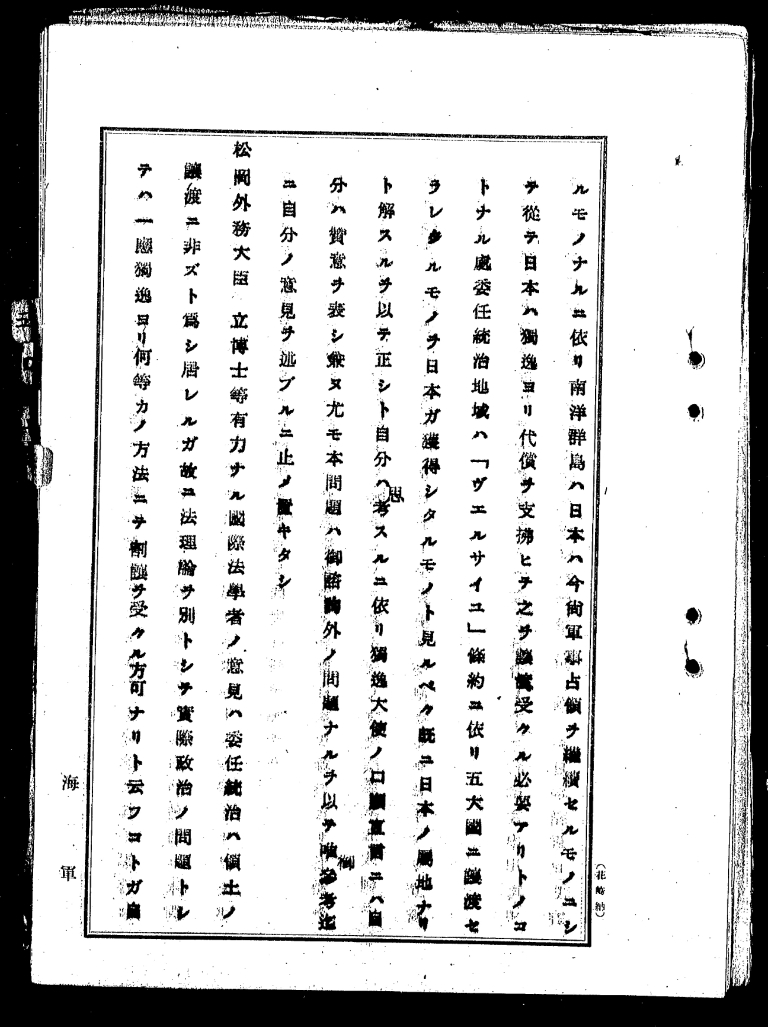 ルモノナルニ依リ南洋群島ハ日本ハ今尚軍事占領ヲ繼續セルモノニシ
テ從テ日本ハ獨逸ヨリ代償ヲ支拂ヒテ之ヲ譲渡受クル必要アリトノコ
トナル處委任統治地域ハ「ヴエルサイユ」條約ニ依リ五大國ニ譲渡セ
ラレタルモノヲ日本ガ獲得シタルモノト見ルベク既ニ日本ノ屬地ナリ
ト解スルヲ以テ正シト自分ハ思考スルニ依リ獨逸大使ノ口頭宣言ニハ自
分ハ贊意ヲ表シ兼ヌ尤モ本問題ハ御諮詢外ノ問題ナルヲ以テ唯御參考迄
ニ自分ノ意見ヲ述ブルニ止メ置キタシ
松岡外務大臣 立博士等有力ナル國際法學者ノ意見ハ委任統治ハ領土ノ
譲渡ニ非ズト爲シ居レルガ故ニ法理論ヲ別トシテ實際政治ノ問題トシ
テハ一應獨逸ヨリ何等カノ方法ニテ割譲ヲ受クル方可ナリト云フコトガ自
海軍